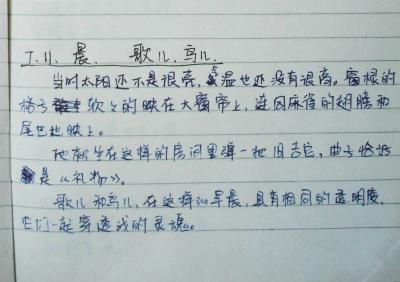 7.11. 晨. 歌儿.鸟儿.
当时太阳还不是很亮，气温也还没有很高。窗棂的
格子软软的映在大窗帘上，连同麻雀的翅膀和
尾巴也映上。
他就坐在这样的房间里弹一把旧吉它，曲子恰好
是《礼物》。
歌儿和鸟儿，在这样的早晨，具有相同的透明度，
它们一起穿透我的灵魂。